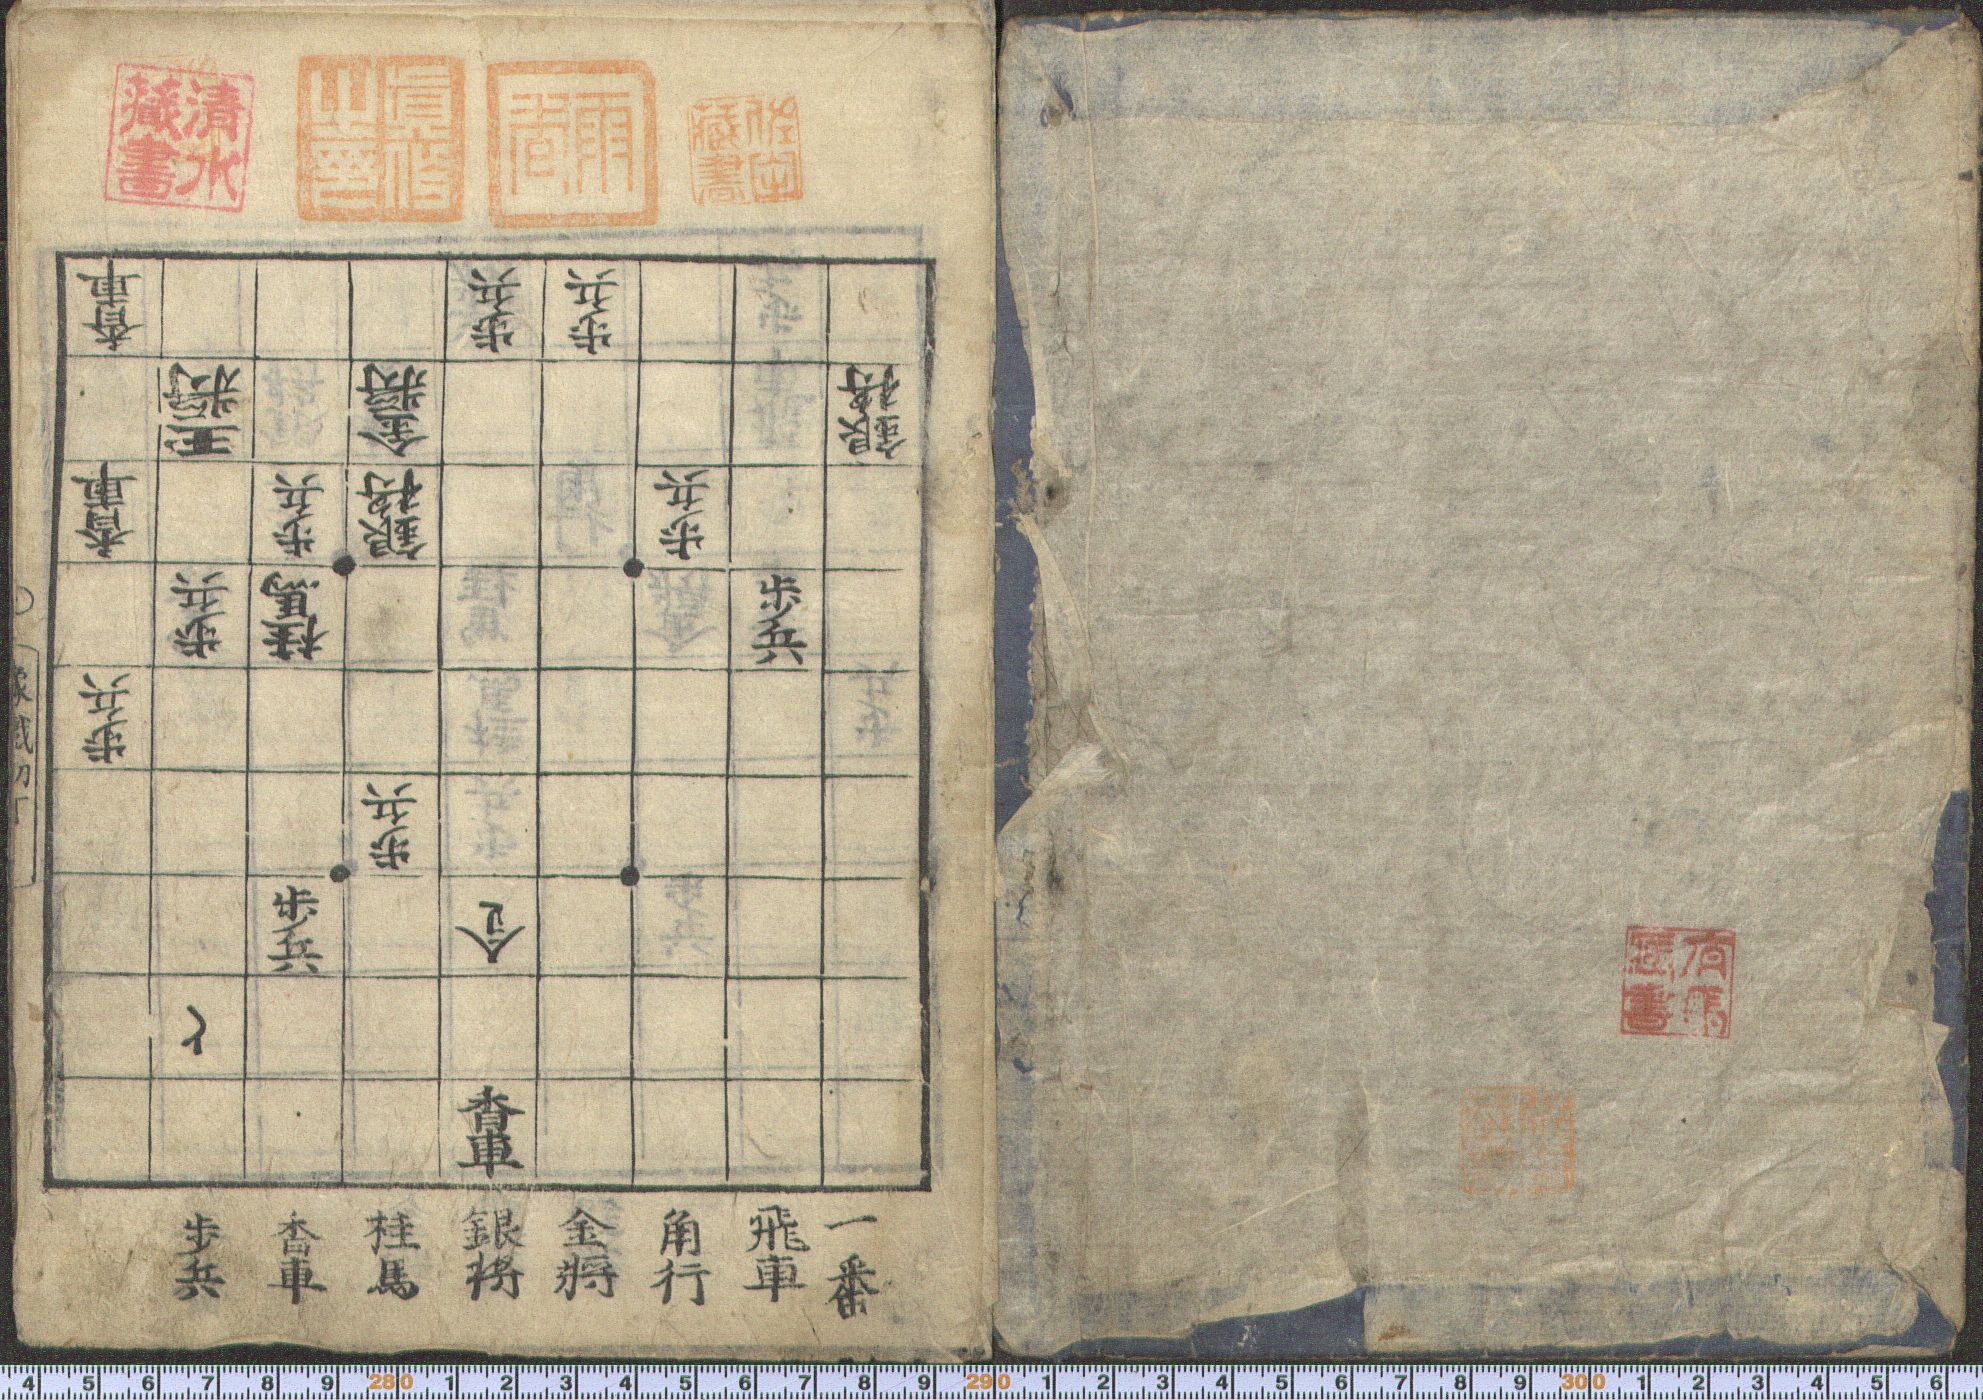 清水
藏書
藏書
香車
歩兵
歩兵
玉将
金将
銀将
香車
歩兵
銀将
歩兵
歩兵
桂馬
歩兵
歩兵
歩兵
歩兵
と
香車
一番
飛車
角行
金将
銀将
桂馬
香車
歩兵
4 5 6 7 8 9 280 1 2 3 4 5 6 7 8 9 290 1 2 3 4 5 6 7 8 9 300 1 2 3 4 5 6